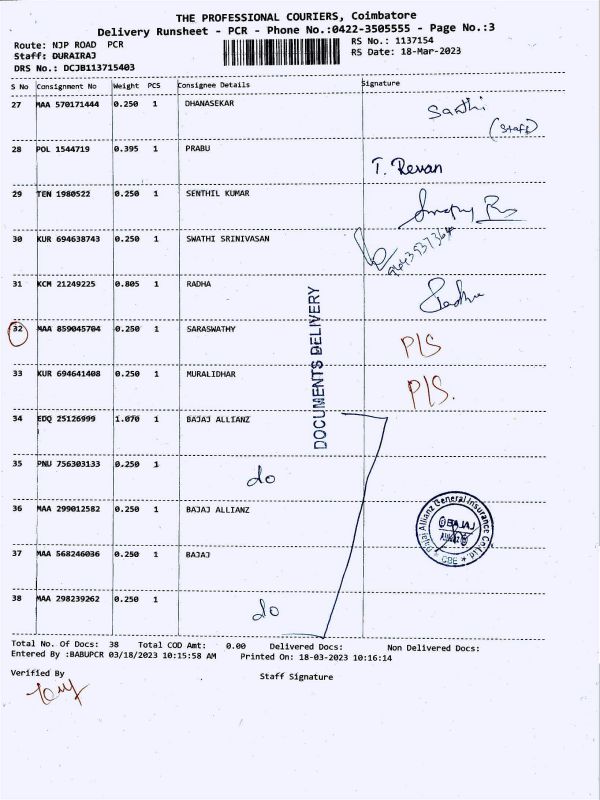 THE PROFESSIONAL COURIERS, Coimbatore
Delivery Runsheet - PCR - Phone No.:0422-3505555 - Page No.:3
Route: NJP ROAD PCR
RS No.: 1137154
Staff: DURAIRAJ
RS Date: 18-Mar-2023
DRS No.: DCJB113715403
S No Consignment No Weight PCS Consignee Details Signature
27 MAA 570171444 0.250 1 DHANASEKAR
Santhi
(Staff)
28 POL 1544719 0.395 1 PRABU
T. Revan
29 TEN 1980522 0.250 1 SENTHIL KUMAR
30 KUR 694638743 0.250 1 SWATHI SRINIVASAN
31 KCM 21249225 0.805 1 RADHA
Radha
32 MAA 859045704 0.250 1 SARASWATHY
P/S
33 KUR 694641408 0.250 1 MURALIDHAR
P/S.
DOCUMENTS DELIVERY
34 EDQ 25126999 1.070 1 BAJAJ ALLIANZ
35 PNU 756303133 0.250 1 do
36 MAA 299012582 0.250 1 BAJAJ ALLIANZ
37 MAA 568246036 0.250 1 BAJAJ
38 MAA 298239262 0.250 1 do
Bajaj Allianz General Insurance Co Ltd.
BAJAJ
CBE
Total No. Of Docs: 38 Total COD Amt: 0.00 Delivered Docs: Non Delivered Docs:
Entered By :BABUPCR 03/18/2023 10:15:58 AM Printed On: 18-03-2023 10:16:14
Verified By
Staff Signature